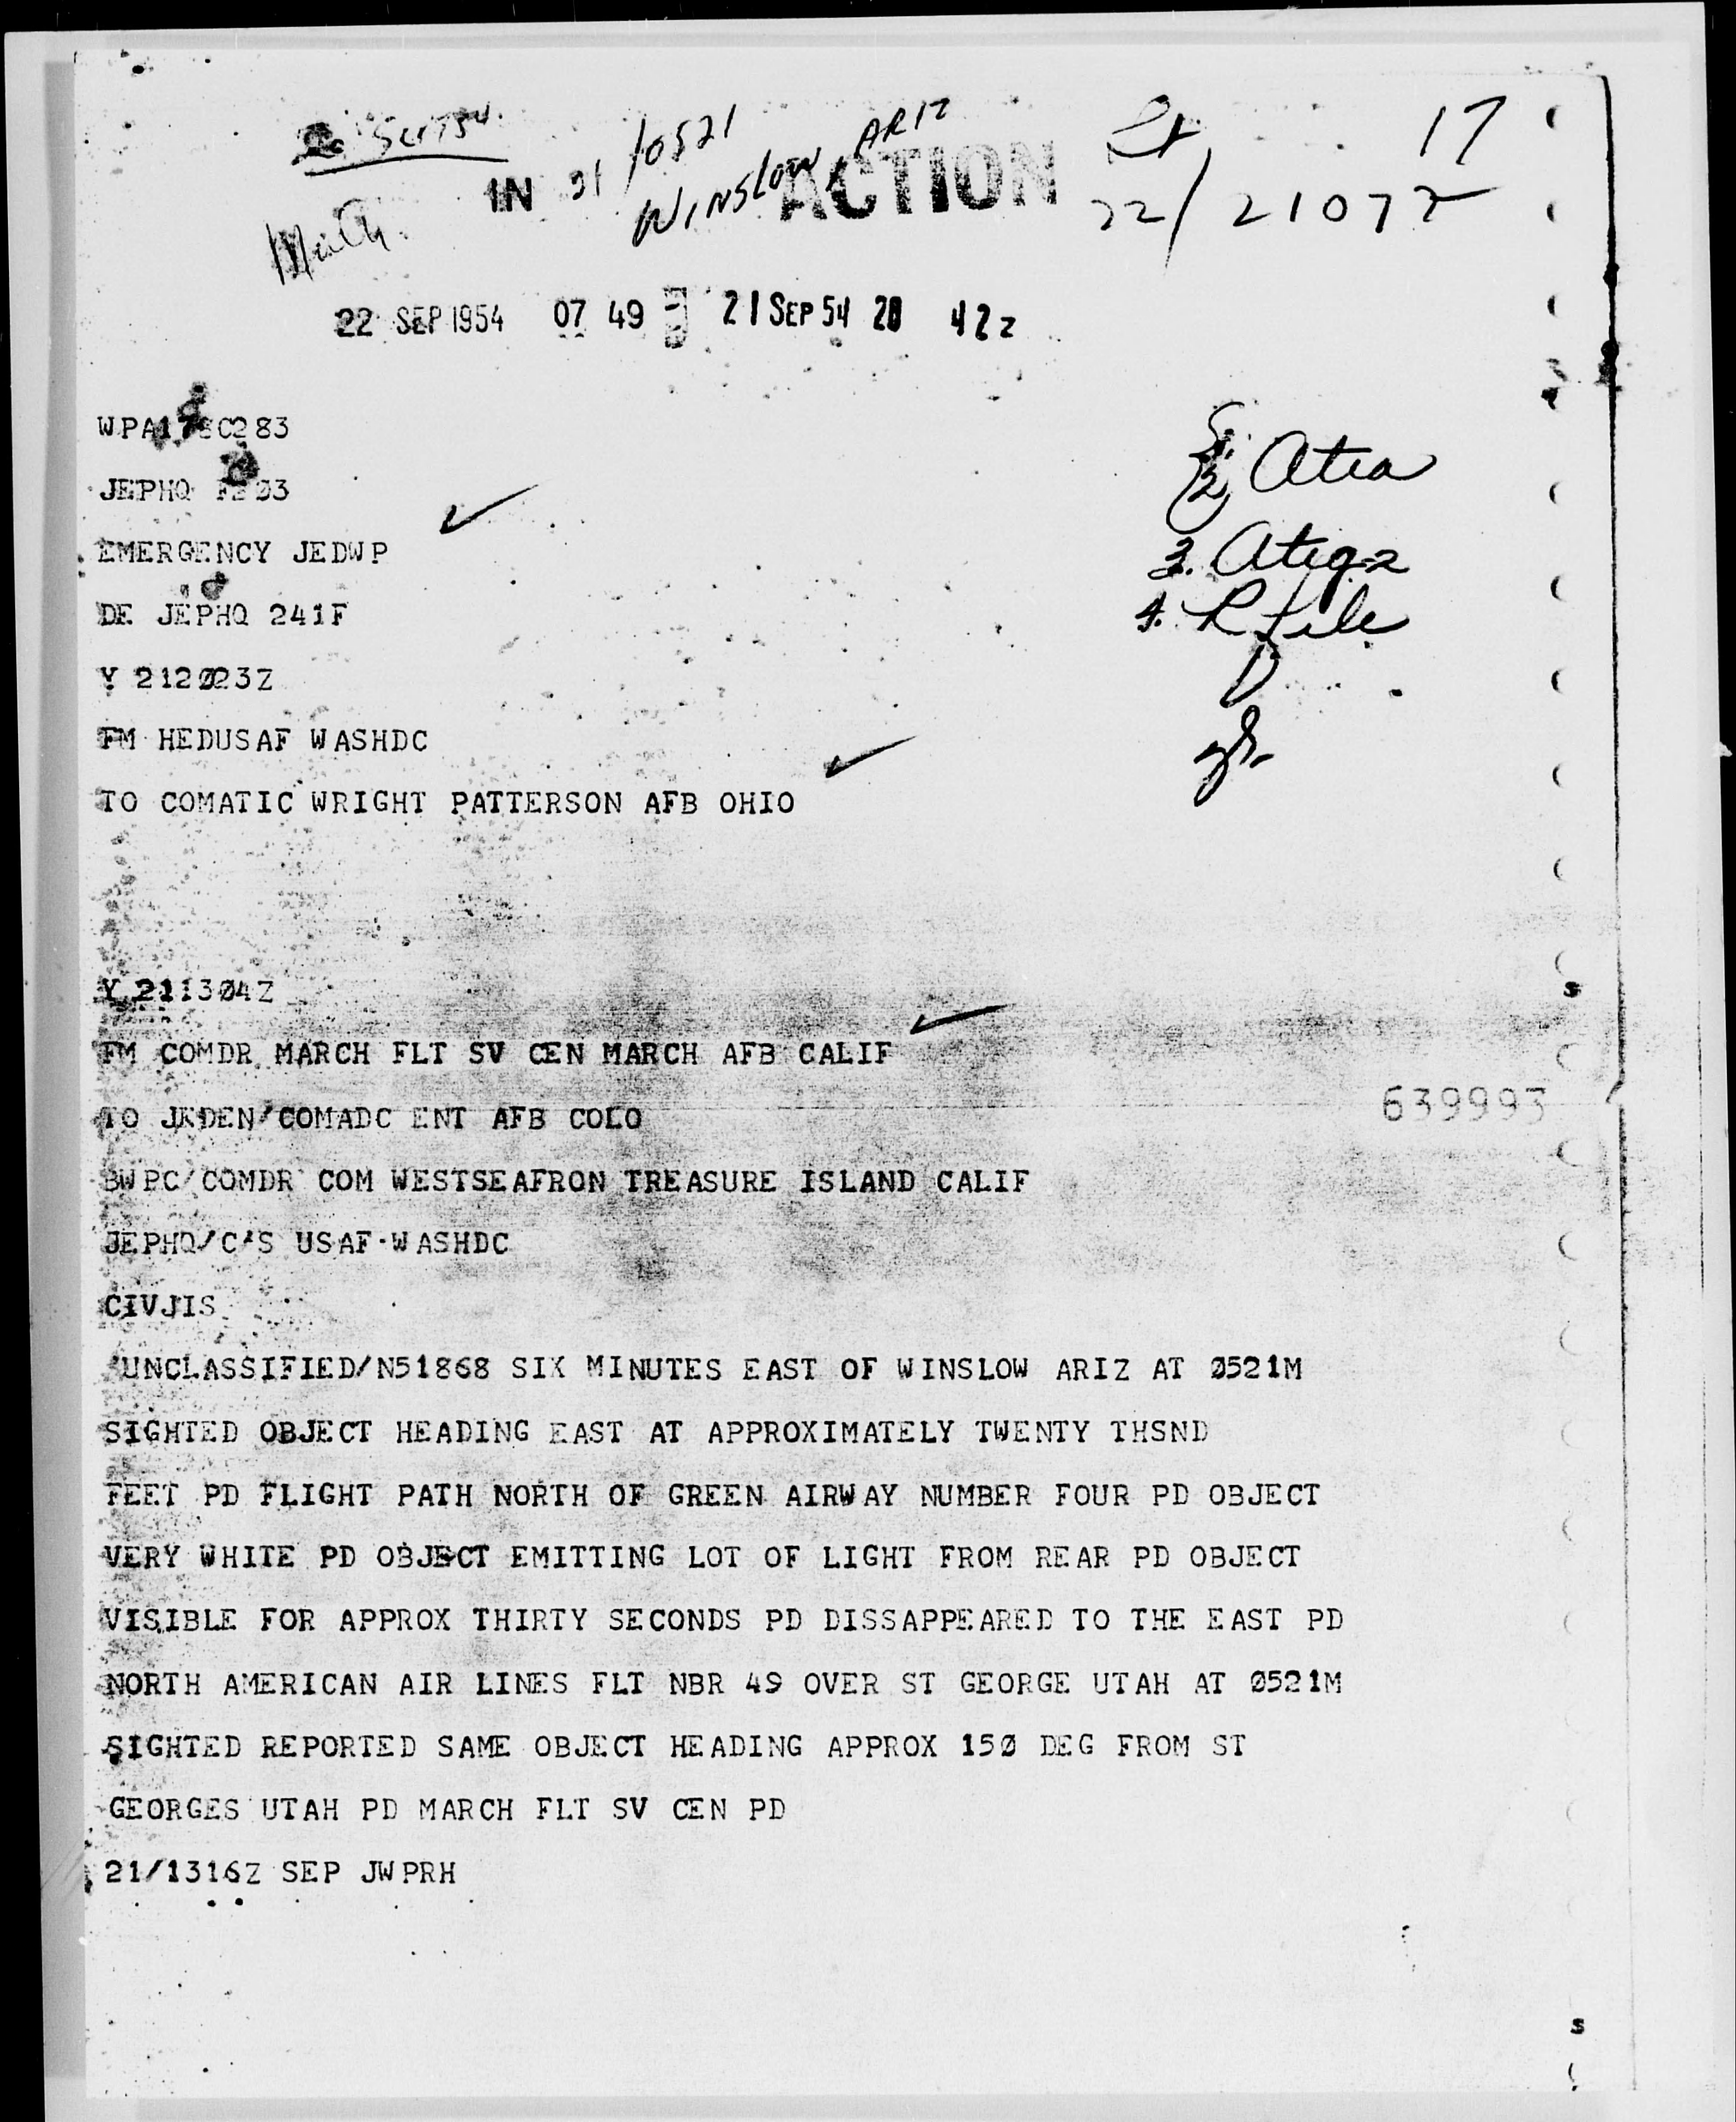 IN 21/0521 ACTION 17
WINSLOW, ARIZ
22/2107Z
22 SEP 1954 07 49 21 SEP 54 20 42Z
EMERGENCY JEDWP
DE JEPHQ 241F
Y 212023Z
FM HEDUSAF WASHDC
TO COMATIC WRIGHT PATTERSON AFB OHIO
Atia
3. Atiq-2
4. R File
Y 211304Z
FM COMDR MARCH FLT SV CEN MARCH AFB CALIF
639993
TO JEDEN/COMADC ENT AFB COLO
BWPC/COMDR COM WESTSEAFRON TREASURE ISLAND CALIF
JEPHQ/C/S USAF WASHDC
CIVJIS
UNCLASSIFIED/N51868 SIX MINUTES EAST OF WINSLOW ARIZ AT 0521M
SIGHTED OBJECT HEADING EAST AT APPROXIMATELY TWENTY THSND
FEET PD FLIGHT PATH NORTH OF GREEN AIRWAY NUMBER FOUR PD OBJECT
VERY WHITE PD OBJECT EMITTING LOT OF LIGHT FROM REAR PD OBJECT
VISIBLE FOR APPROX THIRTY SECONDS PD DISSAPPEARED TO THE EAST PD
NORTH AMERICAN AIR LINES FLT NBR 49 OVER ST GEORGE UTAH AT 0521M
SIGHTED REPORTED SAME OBJECT HEADING APPROX 150 DEG FROM ST
GEORGES UTAH PD MARCH FLT SV CEN PD
21/1316Z SEP JWPRH